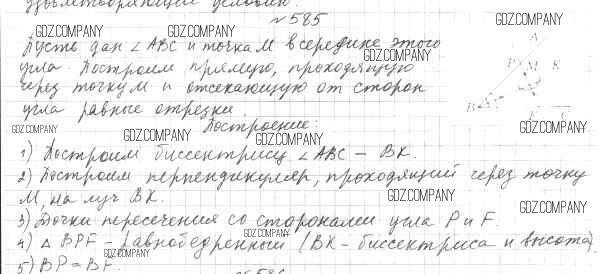 удовлетворяющие условию.
№585
GDZ.COMPANY GDZ.COMPANY GDZ.COMPANY
Пусть дан ∠ABC и точка M в середине этого
GDZ.COMPANY
угла. Построим прямую, проходящую
через точку M и отсекающую от сторон
угла равные отрезки.
A
P M K
B
F C
GDZ.COMPANY
Построение:
GDZ.COMPANY GDZ.COMPANY GDZ.COMPANY
1) Построим биссектрису ∠ABC – BK.
GDZ.COMPANY
2) Построим перпендикуляр, проходящий через точку
M, на луч BK.
GDZ.COMPANY
GDZ.COMPANY
3) Точки пересечения со сторонами угла P и F.
GDZ.COMPANY
4) △ BPF – равнобедренный (BK – биссектриса и высота).
GDZ.COMPANY
5) BP = BF.
№586